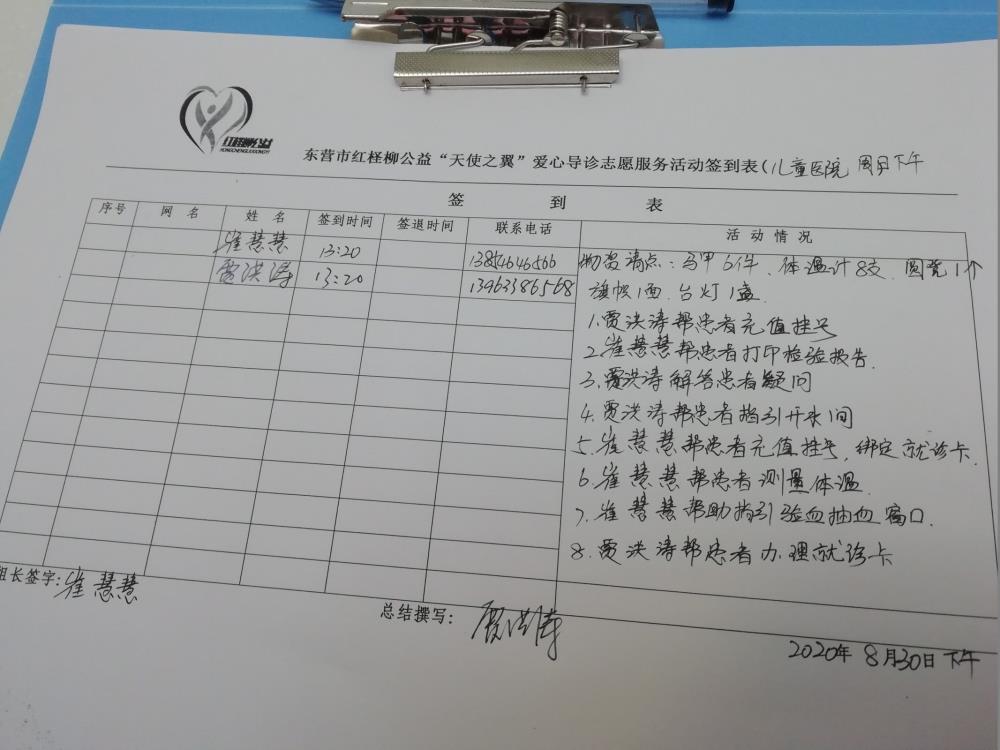 红柽柳公益
HONGCHENGLIUGONGYI
东营市红柽柳公益“天使之翼”爱心导诊志愿服务活动签到表(儿童医院 周日下午
签 到 表
序号 网 名 姓 名 签到时间 签退时间 联系电话 活 动 情 况
崔慧慧 13:20 13854646566
贾洪涛 13:20 13963386568
物资清点:马甲6件、体温计8支、圆凳1个
旗帜1面、台灯1盏.
1.贾洪涛帮患者充值挂号
2.崔慧慧帮患者打印检验报告.
3.贾洪涛解答患者疑问
4.贾洪涛帮患者指引开水间
5.崔慧慧帮患者充值挂号,绑定就诊卡.
6.崔慧慧帮患者测量体温.
7.崔慧慧帮助指引验血抽血窗口.
8.贾洪涛帮患者办理就诊卡
组长签字:崔慧慧
总结撰写: 贾洪涛
2020年 8月30日 下午